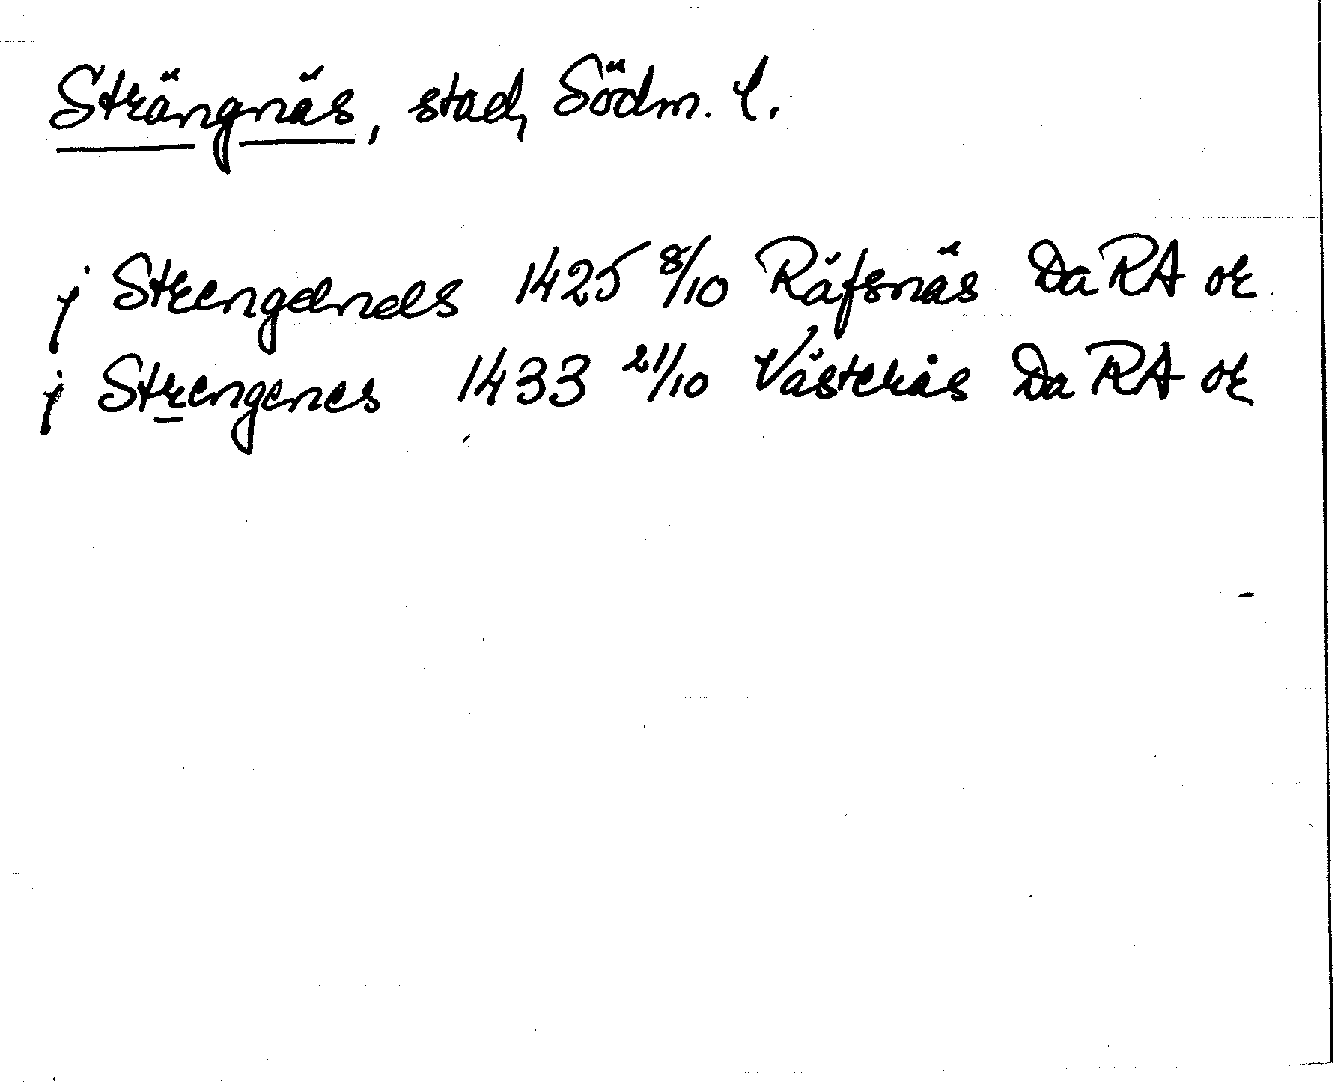 Strängnäs, stad, Södm. l.
j Strengenes 1425 8/10 Räfsnäs Da RA or
j Strengenes 1433 21/10 Västerås Da RA or